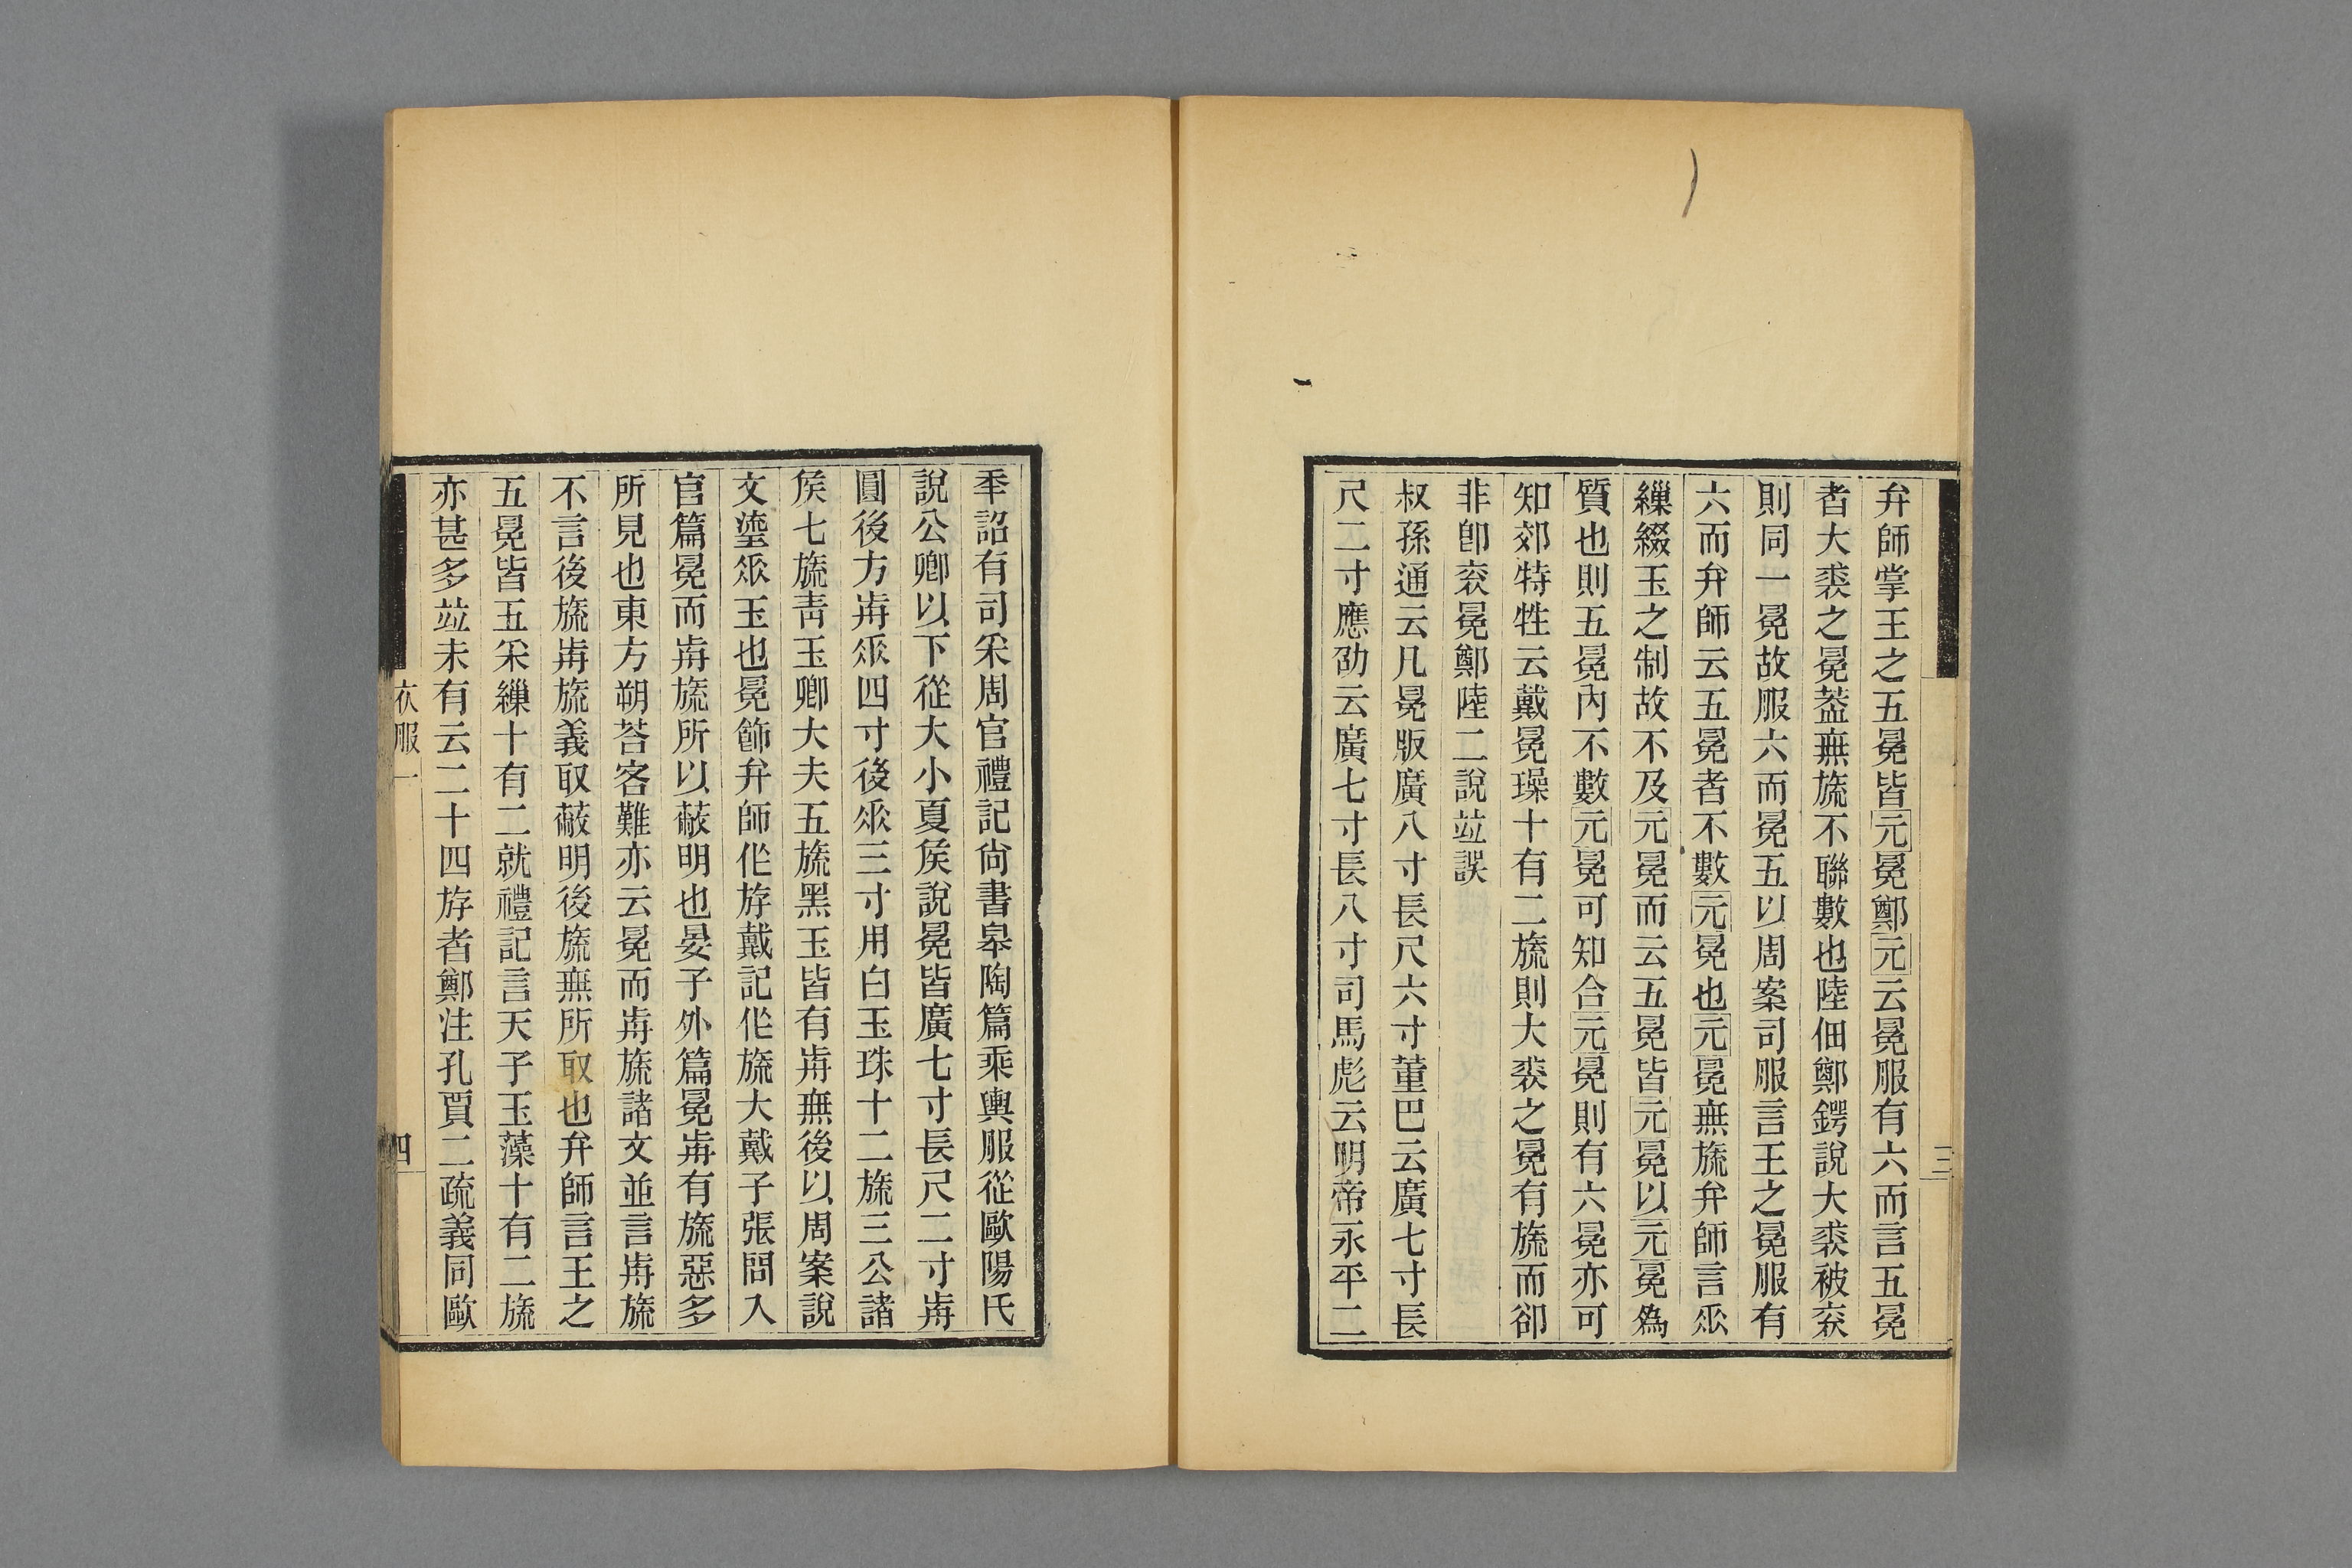 弁師掌王之五冕皆元冕鄭元云冕服有六而言五冕
者大裘之冕蓋無旒不聯數也陸佃鄭鍔說大裘被袞
則同一冕故服六而冕五以周案司服言王之冕服有
六而弁師云五冕者不數元冕也元冕無旒弁師言𠂢
繅綴玉之制故不及元冕而云五冕皆元冕以元冕爲
質也則五冕內不數元冕可知合元冕則有六冕亦可
知郊特牲云戴冕璪十有二旒則大裘之冕有旒而卻
非卽袞冕鄭陸二說竝誤
叔孫通云凡冕版廣八寸長尺六寸董巴云廣七寸長
尺二寸應劭云廣七寸長八寸司馬彪云明帝永平二
三
秊詔有司采周官禮記尙書皋陶篇乘輿服從歐陽氏
說公卿以下從大小夏侯說冕皆廣七寸長尺二寸歬
圓後方歬𠂢四寸後𠂢三寸用白玉珠十二旒三公諸
侯七旒靑玉卿大夫五旒黑玉皆有歬無後以周案說
文瑬𠂢玉也冕飾弁師作斿戴記作旒大戴子張問入
官篇冕而歬旒所以蔽明也晏子外篇冕歬有旒惡多
所見也東方朔荅客難亦云冕而歬旒諸文並言歬旒
不言後旒歬旒義取蔽明後旒無所取也弁師言王之
五冕皆五采繅十有二就禮記言天子玉藻十有二旒
亦甚多竝未有云二十四斿者鄭注孔賈二疏義同歐
衣服一
四